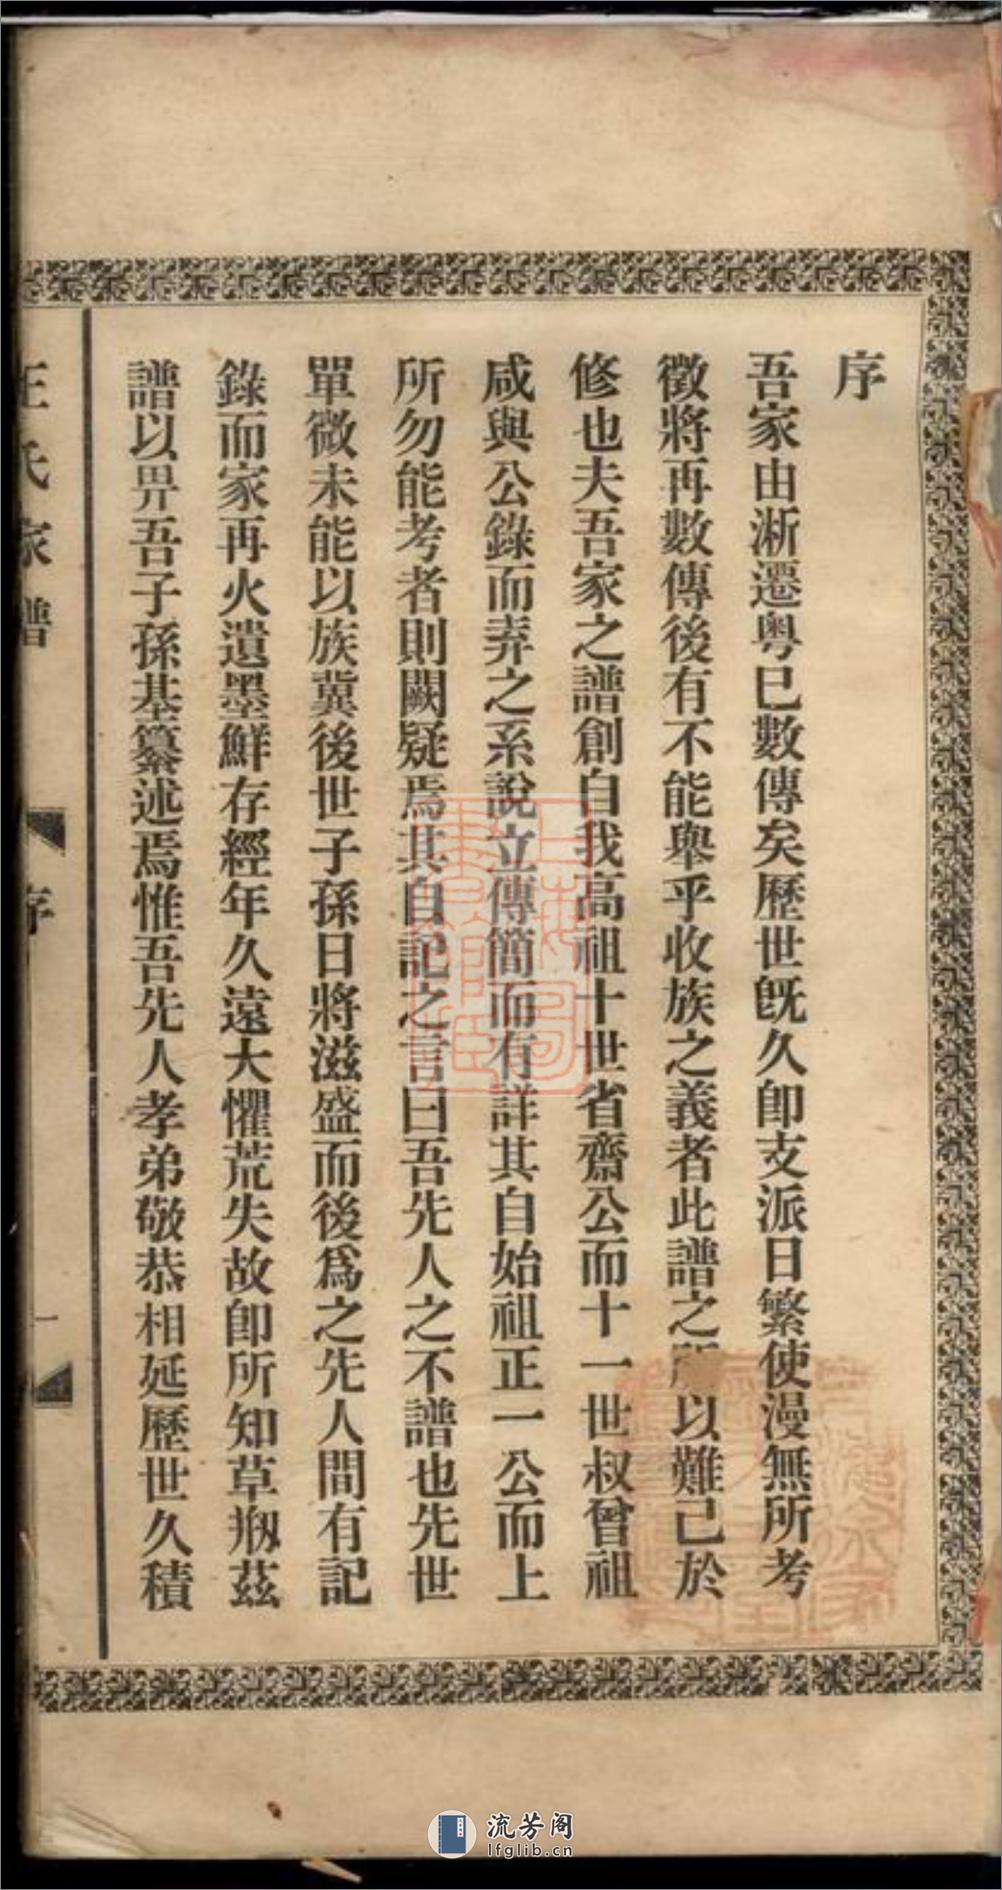 序
吾家由淅遷粤巳數傳矣歷世旣久卽支派日繁使漫無所考
徵將再數傳後有不能舉乎收族之義者此譜之所以難已於
修也夫吾家之譜創自我高祖十世省齋公而十一世叔曾祖
咸與公錄而弆之系說立傳簡而有詳其自始祖正一公而上
所勿能考者則闕疑焉其自記之言曰吾先人之不譜也先世
單微未能以族冀後世子孫日將滋盛而後爲之先人間有記
錄而家再火遺墨鮮存經年久遠大懼荒失故卽所知草剏茲
譜以畀吾子孫基纂述焉惟吾先人孝弟敬恭相延歷世久積
王氏家譜
序
一
流芳阁
lfglib.cn